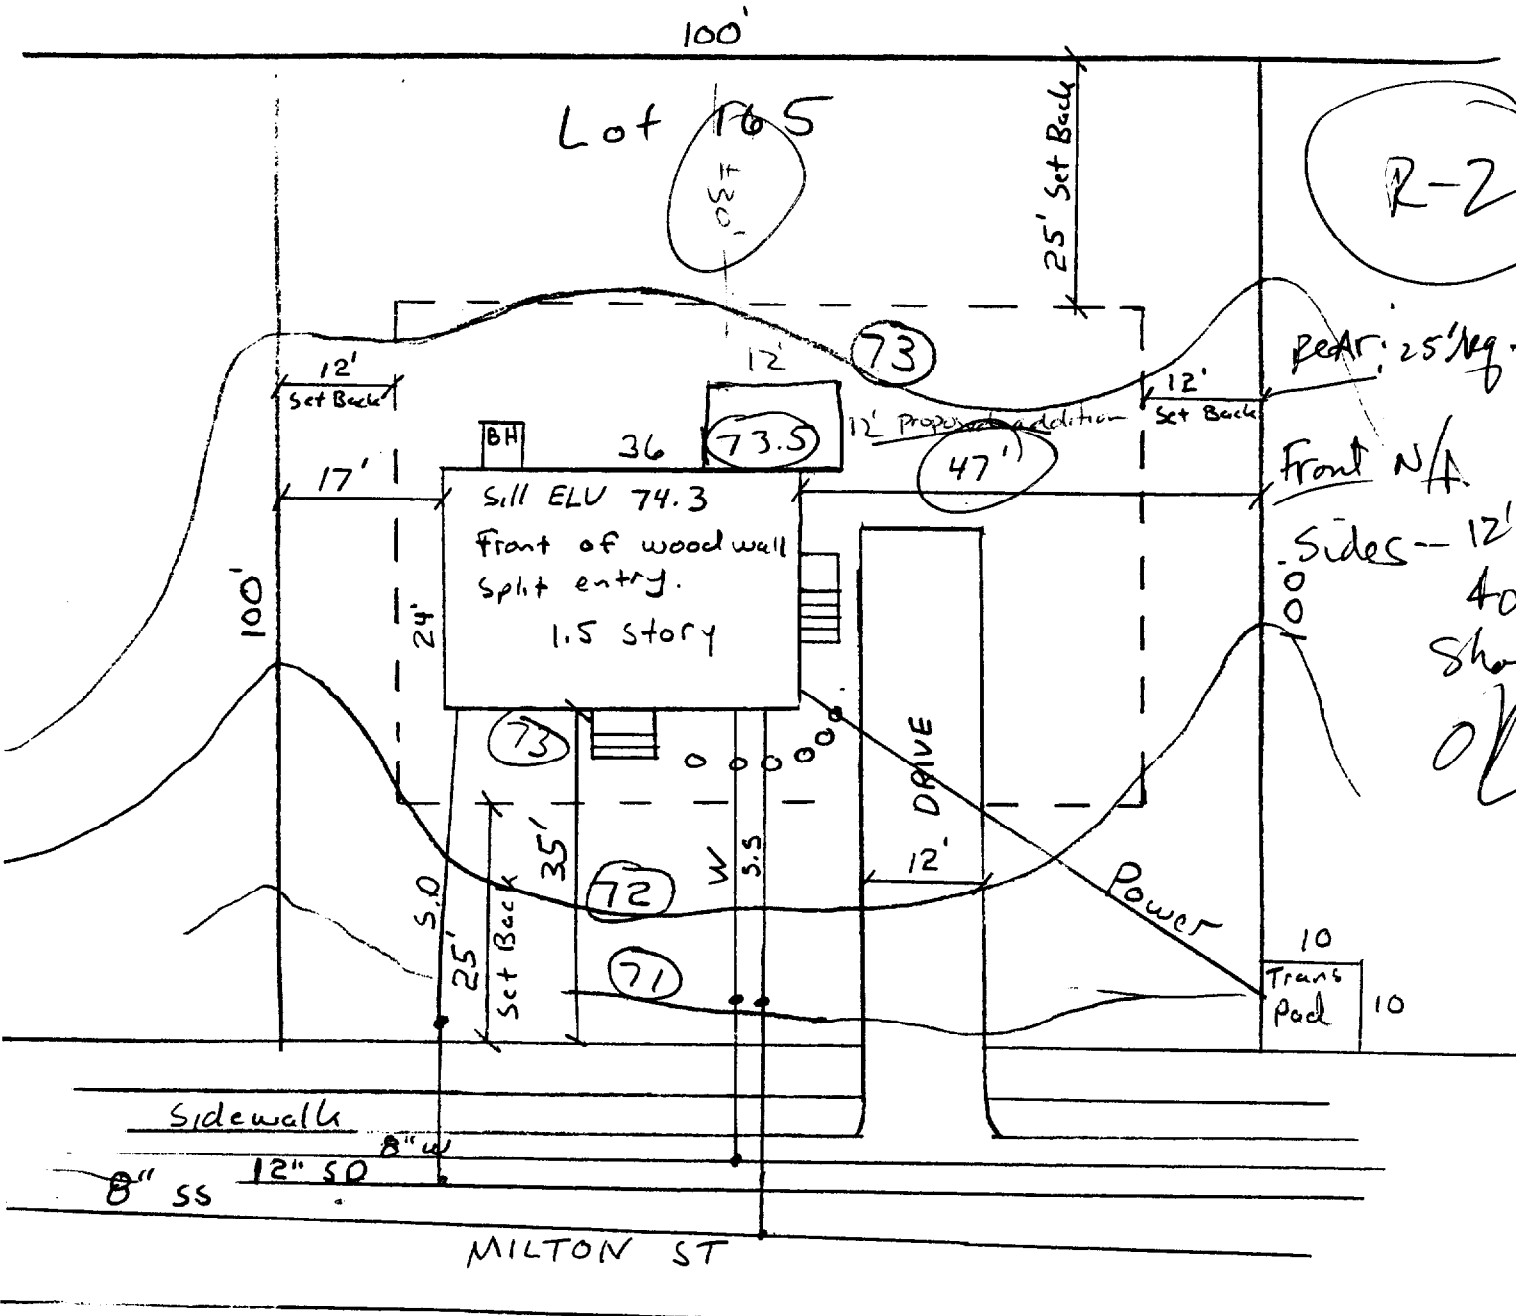 100'
Lot 165
±30'
25' Set Back
R-2
12'
Set Back
12'
73
12'
Set Back
Rear: 25' req.
BH
36
73.5
12' proposed addition
17'
47'
Front N/A
Sill ELV 74.3
Front of wood wall
Split entry.
1.5 Story
Sides-- 12'
100'
24'
100'
73
DRIVE
35'
12'
72
W
S.S
S.D
25'
Set Back
Power
71
10
Trans
Pad
10
Sidewalk
8" W
12" SD
8" SS
MILTON ST